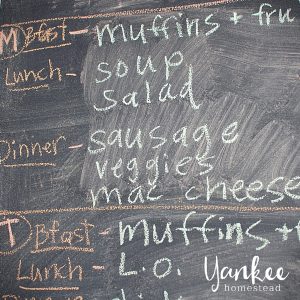 M Bfast - muffins + fru
Lunch - soup
salad
Dinner - sausage
veggies
mac cheese
T Bfast - muffins +
Lunch - L.O.
Yankee
homestead